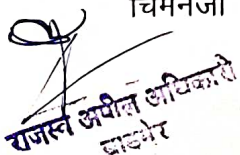 चिमनजी
राजस्व अपील अधिकारी
बाड़मेर